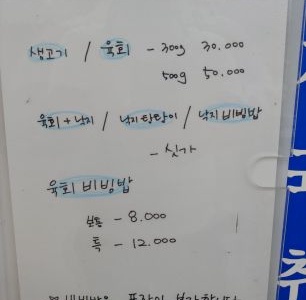 생고기 / 육회 - 300g 30.000
500g 50.000
육회+낙지 / 낙지탕탕이 / 낙지비빔밥
- 싯가
육회비빔밥
보통 - 8.000
특 - 12.000